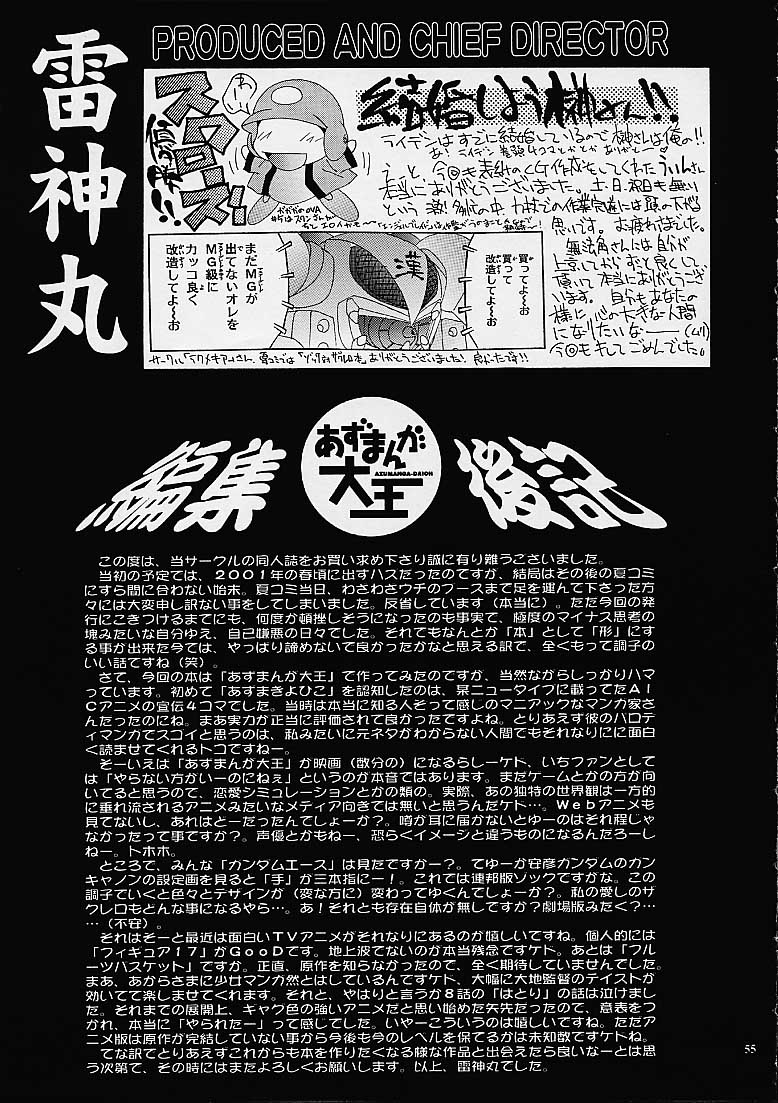 雷神丸
PRODUCED AND CHIEF DIRECTOR
結婚しよう榊さん!!
ライデンはすでに結婚しているので榊さんは俺の!!
本当にありがとうございました。土、日、祝日も無い
思いです。お疲れさまでした。
になりたいなー(ムリ)
今回もキしてごめんでした。
買ってよ〜お
買って
改造してよ〜お
漢
まだMGが
出てないオレを
MG級に
カッコ良く
改造してよ〜お
編集
あずまんが
AZUMANGA-DAIOH
大王
後記
この度は、当サークルの同人誌をお買い求め下さり誠に有り難うごさいました。
当初の予定ては、2001年の春頃に出すハスだったのてすが、結局はその後の夏コミ
にすら間に合わない始末。夏コミ当日、わさわさウチのフースまて足を運んて下さった方
々には大変申し訳ない事をしてしまいました。反省しています(本当に)。たた今回の発
行にこきつけるまてにも、何度か頓挫しそうになったのも事実て、極度のマイナス思考の
塊みたいな自分ゆえ、自己嫌悪の日々てした。それてもなんとか「本」として「形」にす
る事か出来た今ては、やっぱり諦めないて良かったかなと思える訳て、全くもって調子の
いい話てすね(笑)。
さて、今回の本は「あすまんか大王」て作ってみたのてすか、当然なからしっかりハマ
っています。初めて「あすまきよひこ」を認知したのは、某ニュータイフに載ってたAI
Cアニメの宣伝4コマてした。当時は本当に知る人そって感しのマニアックなマンカ家さ
んたったのにね。まあ実力か正当に評価されて良かったてすよね。とりあえす彼のハロテ
ィマンカてスゴイと思うのは、私みたいに元ネタかわからない人間てもそれなりにに面白
く読ませてくれるトコてすねー。
そーいえは「あすまんか大王」か映画(数分の)になるらしーケト、いちファンとして
は「やらない方かいーのにねぇ」というのか本音てはあります。またケームとかの方か向
いてると思うのて、恋愛シミュレーションとかの類の。実際、あの独特の世界観は一方的
に垂れ流されるアニメみたいなメティア向きては無いと思うんたケト…。Webアニメも
見てないし、あれはとーたったんてしょーか?。噂か耳に届かないとゆーのはそれ程しゃ
なかったって事てすか?。声優とかもねー、恐らくイメーシと違うものになるんたろーし
ねー。トホホ。
ところて、みんな「カンタムエース」は見たてすかー?。てゆーか安彦カンタムのカン
キャノンの設定画を見ると「手」か三本指にー!。これては連邦版ソックてすかな。この
調子ていくと色々とテサインか(変な方に)変わってゆくんてしょーか?。私の愛しのサ
クレロもとんな事になるやら…。あ!それとも存在自体か無してすか?劇場版みたく?…
…(不安)。
それはそーと最近は面白いTVアニメかそれなりにあるのか嬉しいてすね。個人的には
「フィキュア17」かGooDてす。地上波てないのか本当残念てすケト。あとは「フル
ーツハスケット」てすか。正直、原作を知らなかったのて、全く期待していませんてした。
まあ、あからさまに少女マンカ然とはしているんてすケト、大幅に大地監督のテイストか
効いてて楽しませてくれます。それと、やはりと言うか8話の「はとり」の話は泣けまし
た。それまての展開上、キャク色の強いアニメたと思い始めた矢先たったのて、意表をつ
かれ、本当に「やられたー」って感してした。いやーこういうのは嬉しいてすね。たたア
ニメ版は原作か完結していない事から今後も今のレヘルを保てるかは未知数てすケトね。
てな訳てとりあえすこれからも本を作りたくなる様な作品と出会えたら良いなーとは思
う次第て、その時にはまたよろしくお願いします。以上、雷神丸てした。
55